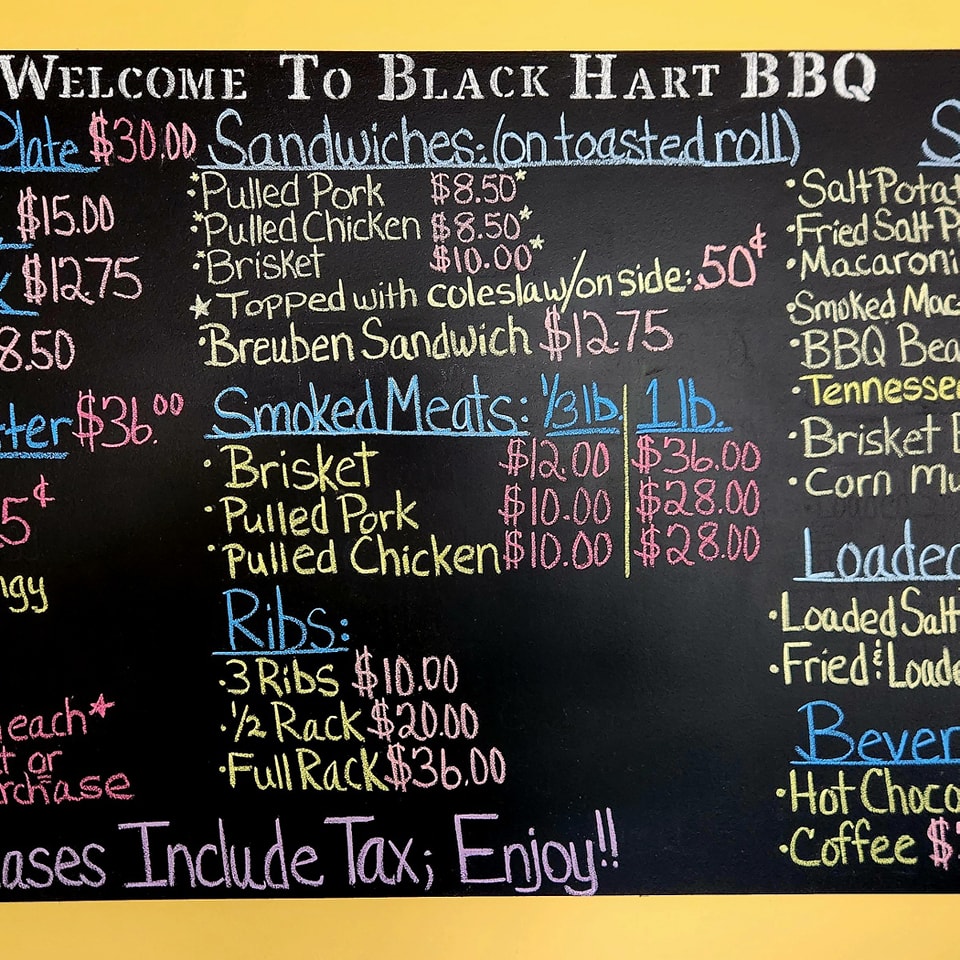 WELCOME TO BLACK HART BBQ
Plate $30.00
$15.00
$12.75
8.50
$36.00
5¢
each*
or
Sandwiches: (on toasted roll)
*Pulled Pork $8.50*
*Pulled Chicken $8.50*
*Brisket $10.00*
* Topped with coleslaw/on side: .50¢
•Breuben Sandwich $12.75
Smoked Meats: 1/3 lb. 1 lb.
•Brisket $12.00 $36.00
•Pulled Pork $10.00 $28.00
•Pulled Chicken $10.00 $28.00
Ribs:
•3 Ribs $10.00
•1/2 Rack $20.00
•Full Rack $36.00
•Salt Potat
•Fried Salt P
•Macaroni
•Smoked Mac
•BBQ Bea
•Tennessee
•Brisket B
•Corn Mu
Loaded
•Loaded Salt
•Fried & Loade
Bever
•Hot Choco
•Coffee $
ases Include Tax; Enjoy!!